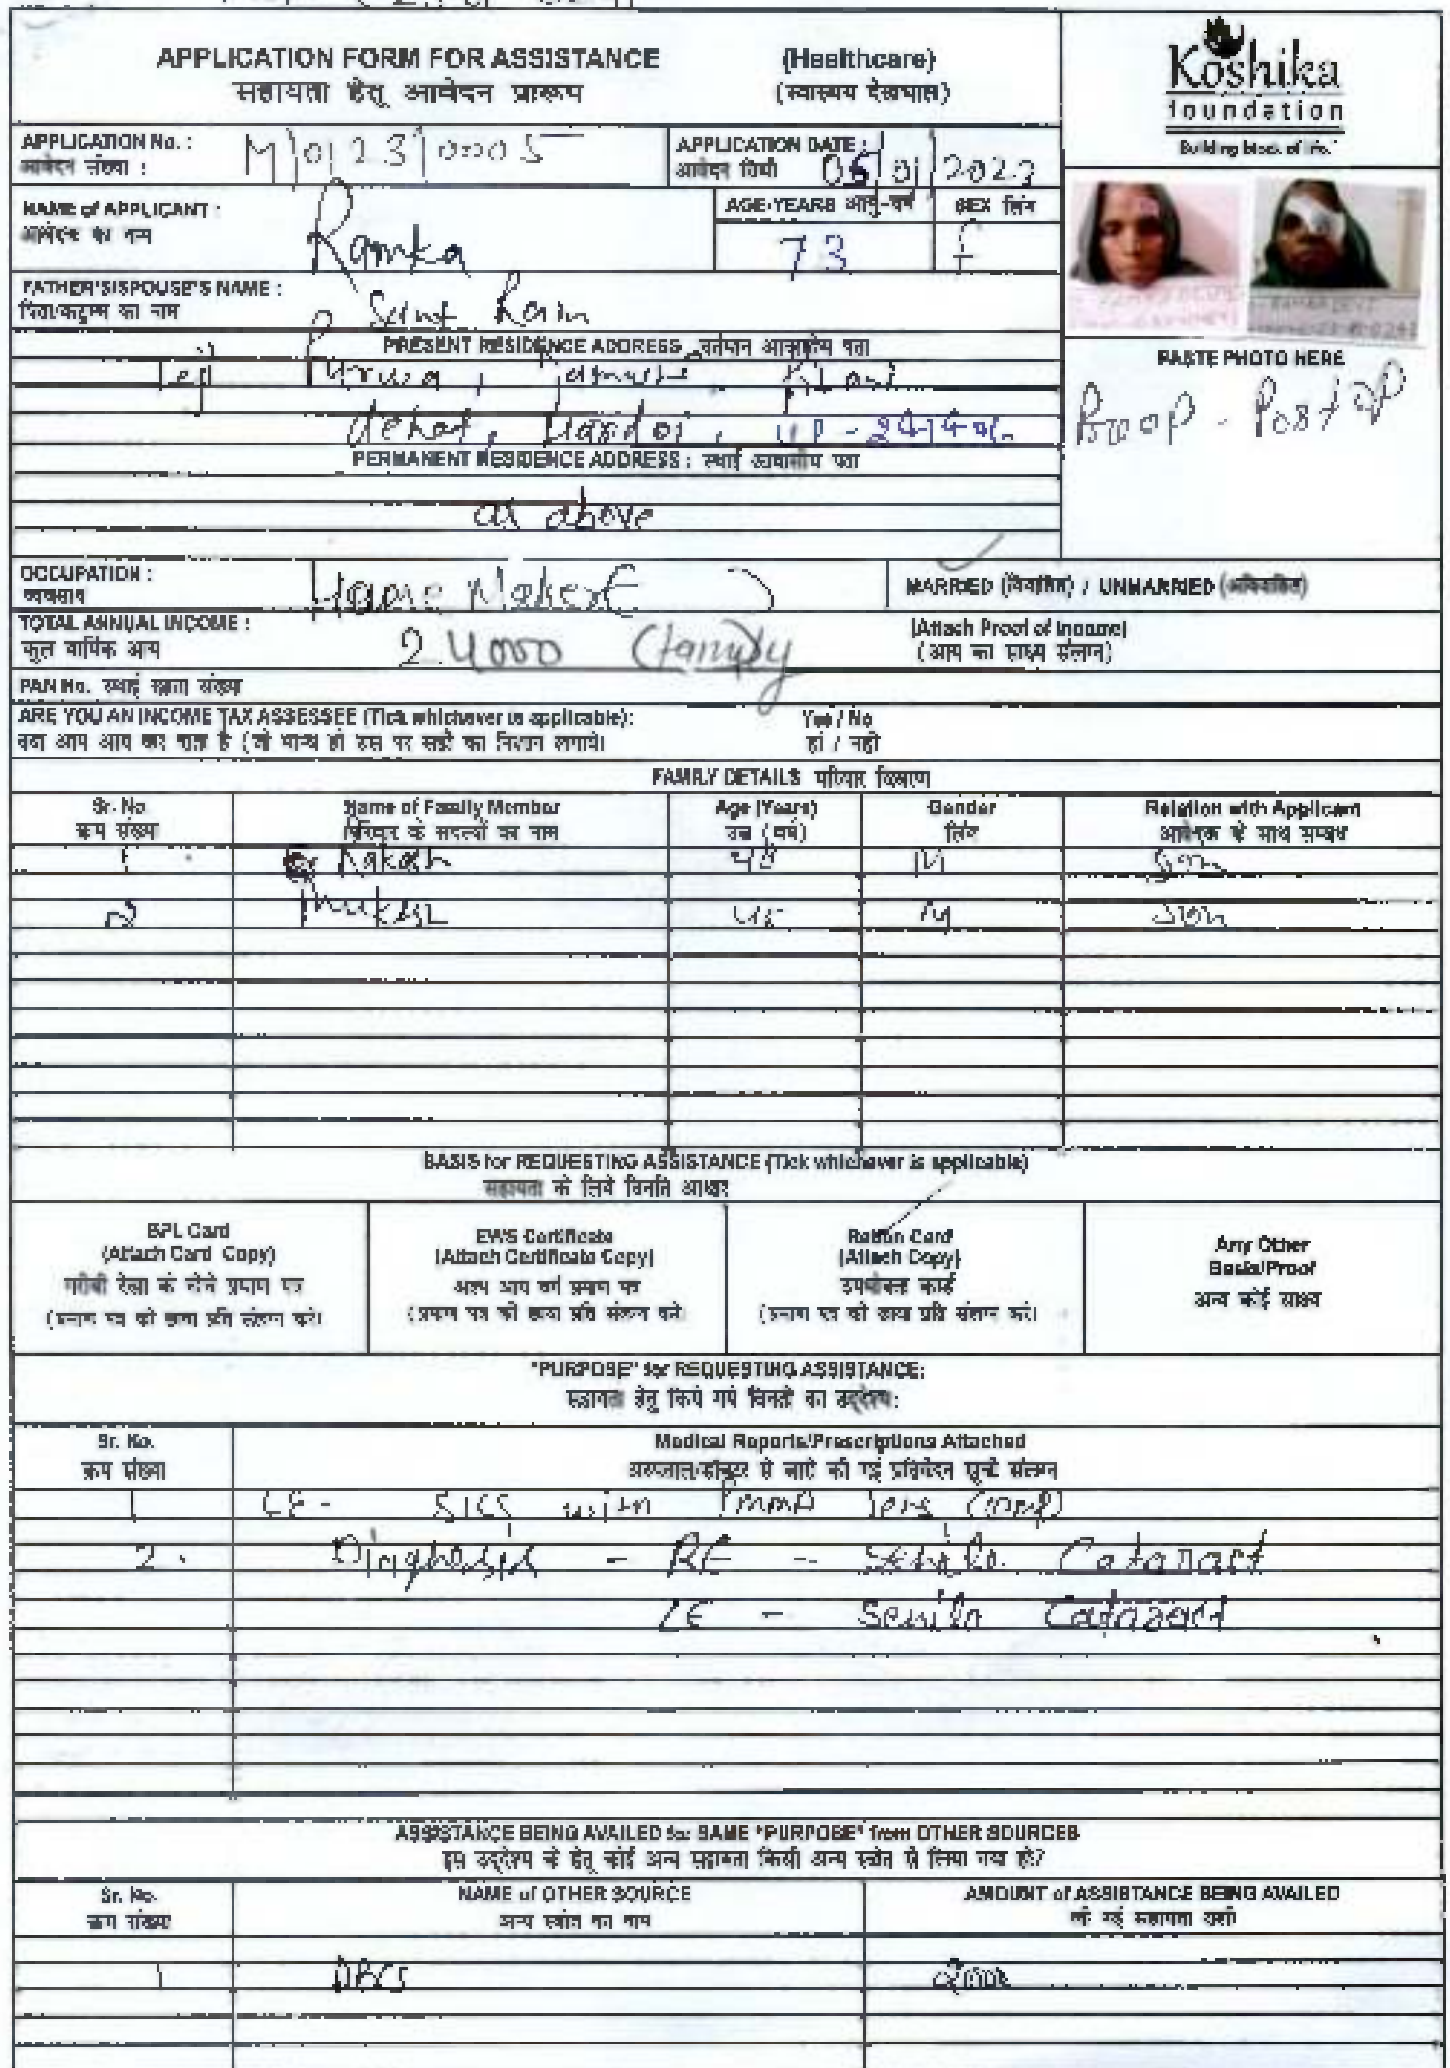 APPLICATION FORM FOR ASSISTANCE (Healthcare)
सहायता हेतू आवेदन प्रारूप (स्वास्थय देखभाल)
Koshika
foundation
Building block of life.
APPLICATION No. : M/0123/0005
आवेदन संख्या :
APPLICATION DATE : 05/01/2023
आवेदन तिथी
NAME of APPLICANT : Ramka
आवेदक का नाम
AGE-YEARS आयु-वर्ष 73
SEX लिंग F
FATHER'S/SPOUSE'S NAME :
पिता/कटुम्ब का नाम
Ram
PRESENT RESIDENCE ADDRESS वर्तमान आवासीय पता
Purwa,
dehat, Hardoi, UP -
PERMANENT RESIDENCE ADDRESS : स्थाई आवासीय पता
as above
PASTE PHOTO HERE
Preop - Post op
OCCUPATION : Home Maker
व्यवसाय
MARRIED (विवाहित) / UNMARRIED (अविवाहित)
TOTAL ANNUAL INCOME : 24000 (family)
कुल वार्षिक आय
(Attach Proof of Income)
(आय का साक्ष्य संलग्न)
PAN No. स्थाई खाता संख्या
ARE YOU AN INCOME TAX ASSESSEE (Tick whichever is applicable): Yes / No
क्या आप आय कर दाता है (जो मान्य हो उस पर सही का निशान लगाये) हां / नहीं
FAMILY DETAILS परिवार विवरण
Sr. No Name of Family Member Age (Years) Gender Relation with Applicant
क्रम संख्या परिवार के सदस्यों का नाम उम्र (वर्ष) लिंग आवेदक के साथ सम्बंध
1 48 M Son
2 Mukesh 45 M Son
BASIS for REQUESTING ASSISTANCE (Tick whichever is applicable)
सहायता के लिये विनति आधार
BPL Card
(Attach Card Copy)
गरीबी रेखा के नीचे प्रमाण पत्र
(प्रमाण पत्र की छाया प्रति संलग्न करे)
EWS Certificate
(Attach Certificate Copy)
अल्प आय वर्ग प्रमाण पत्र
(प्रमाण पत्र की छाया प्रति संलग्न करे)
Ration Card
(Attach Copy)
उपभोक्ता कार्ड
(प्रमाण पत्र की छाया प्रति संलग्न करे)
Any Other
Basis/Proof
अन्य कोई साक्ष्य
"PURPOSE" for REQUESTING ASSISTANCE:
सहायता हेतु किये गये विनती का उद्देश्य:
Sr. No. Medical Reports/Prescriptions Attached
क्रम संख्या अस्पताल/डॉक्टर से जारी की गई प्रतिवेदन सूची संलग्न
1 LE - SICS with PMMA lens
2. Diagnosis - RE - Senile Cataract
LE - Senile Cataract
ASSISTANCE BEING AVAILED for SAME "PURPOSE" from OTHER SOURCES
इस उद्देश्य के हेतू कोई अन्य सहायता किसी अन्य स्त्रोत से लिया गया हो?
Sr. No. NAME of OTHER SOURCE AMOUNT of ASSISTANCE BEING AVAILED
क्रम संख्या अन्य स्त्रोत का नाम ली गई सहायता राशी
1 DBCS